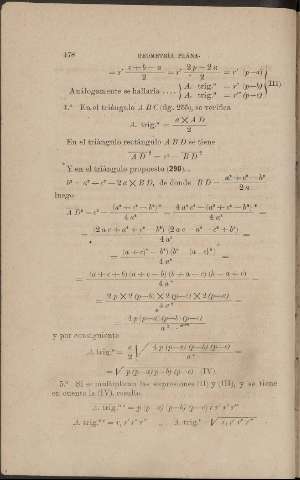 478 GEOMETRÍA PLANA.
= r' (c + b − a)/2 = r' (2p − 2a)/2 = r' (p−a)
Análogamente se hallaría .... A. trig.º = r'' (p−b) (III)
A. trig.º = r''' (p−c)
4.º En el triángulo A B C (fig. 255), se verifica
A. trig.º = (a × A D)/2
En el triángulo rectángulo A B D se tiene
A D² = c² − B D²
Y en el triángulo propuesto (290)
b² = a² + c² − 2 a × B D, de donde B D = (a² + c² − b²)/2 a
luego
A D² = c² − (a² + c² − b²)²/4 a² = (4 a² c² − (a² + c² − b²)²)/4 a² =
= (2 a c + a² + c² − b²) (2 a c − a² − c² + b²)/4 a² =
= ((a + c)² − b²) (b² − (a − c)²)/4 a² =
= (a + c + b) (a + c − b) (b + a − c) (b − a + c)/4 a² =
= 2 p × 2 (p−b) × 2 (p−c) × 2 (p−a)/4 a² =
= 4 p (p−a) (p−b) (p−c)/a²
y por consiguiente
A. trig.º = a/2 √(4 p (p−a) (p−b) (p−c)/a²) =
= √p (p−a) (p−b) (p−c) (IV)
5.º Si se multiplican las expresiones (II) y (III), y se tiene
en cuenta la (IV), resulta